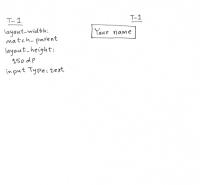 T-1
layout-width:
match-parent
layout-height:
250 dp
input Type: text
T-1
Your name